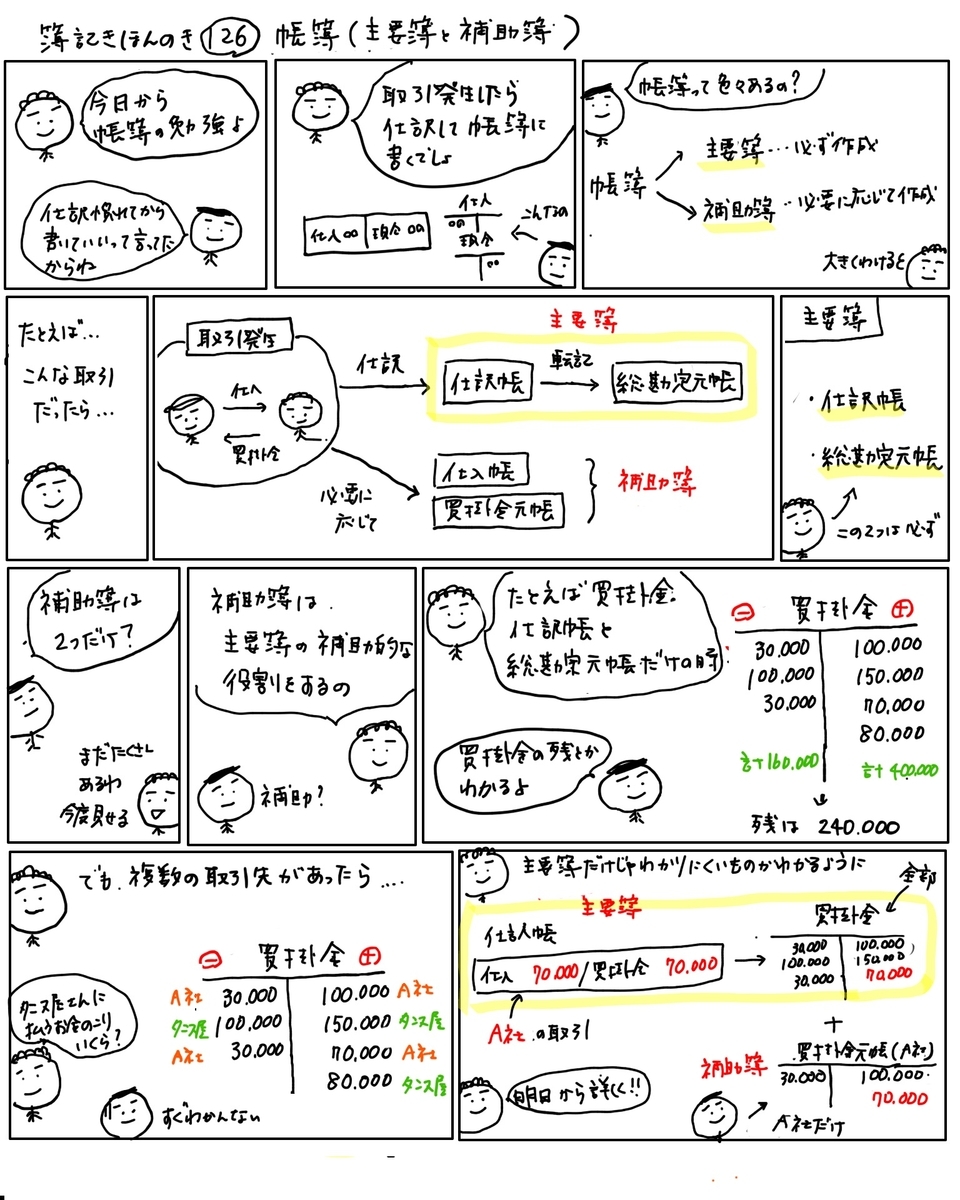 簿記きほんのき 126 帳簿(主要簿と補助簿)
今日から
帳簿の勉強よ
仕訳慣れてから
書いていいって言ってた
からね
取引発生したら
仕訳して帳簿に
書くでしょ
仕入
仕入 00 現金 00
00
現金
00
こんなの
帳簿って色々あるの?
帳簿
主要簿…必ず作成
補助簿…必要に応じて作成
大きくわけると
たとえば…
こんな取引
だったら…
取引発生
仕入
買掛金
仕訳
主要簿
仕訳帳
転記
総勘定元帳
必要に
応じて
仕入帳
買掛金元帳
補助簿
主要簿
・仕訳帳
・総勘定元帳
この2つは必ず
補助簿は
2つだけ?
まだたくさん
あるわ
今度見せる
補助簿は
主要簿の補助的な
役割をするの
補助?
たとえば買掛金.
仕訳帳と
総勘定元帳だけの時.
買掛金の残とか
わかるよ
㊀ 買掛金 ㊉
30.000 100.000
100.000 150.000
30.000 70,000
80.000
計160.000 計400.000
残は 240.000
でも、複数の取引先があったら....
㊀ 買掛金 ㊉
A社 30.000 100.000 A社
タンス屋 100,000 150.000 タンス屋
A社 30,000 70,000 A社
80.000 タンス屋
タンス屋さんに
払うお金のこり
いくら?
すぐわかんない
主要簿だけじゃわかりにくいものがわかるように
主要簿
全部
仕訳帳
仕入 70.000/買掛金 70.000
A社の取引
買掛金
30,000 100.000
100.000 150.000
30.000 70,000
+
補助簿
買掛金元帳(A社)
30.000 100.000
70.000
A社だけ
明日から詳しく!!